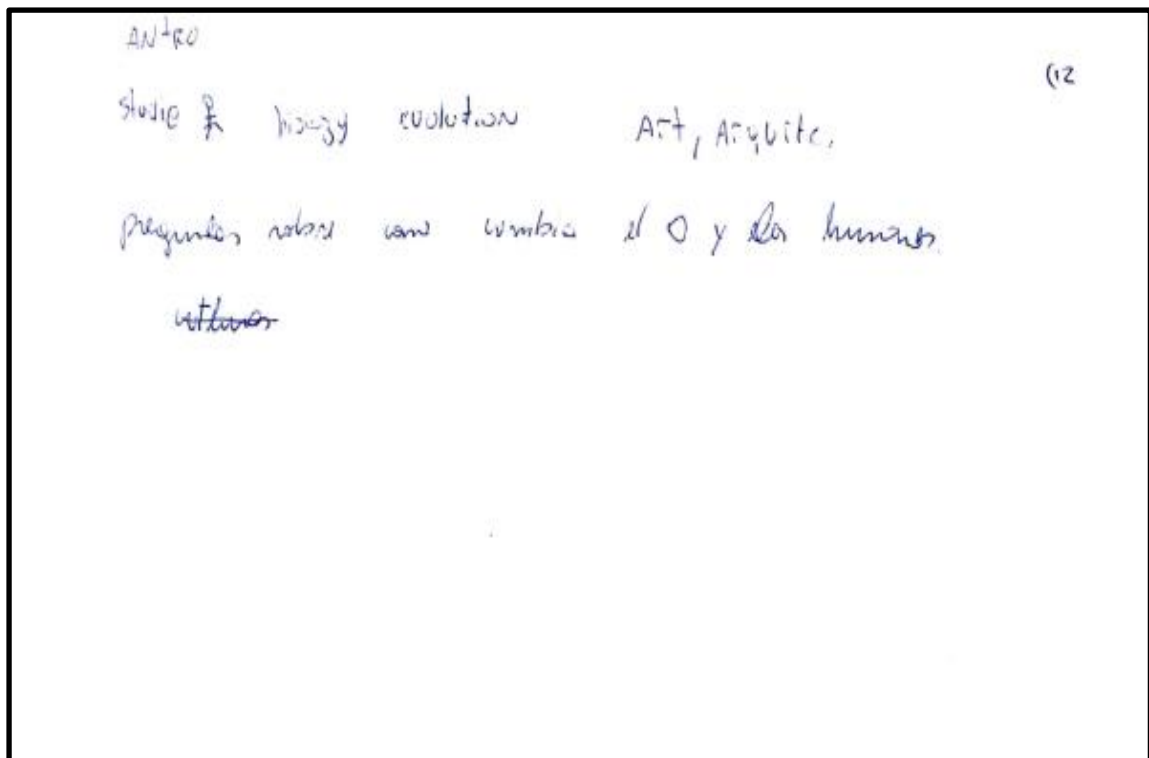 ANtRO
(12
studie evolution Art, Arquite.
preguntas sobre como cambia el O y los humanos.